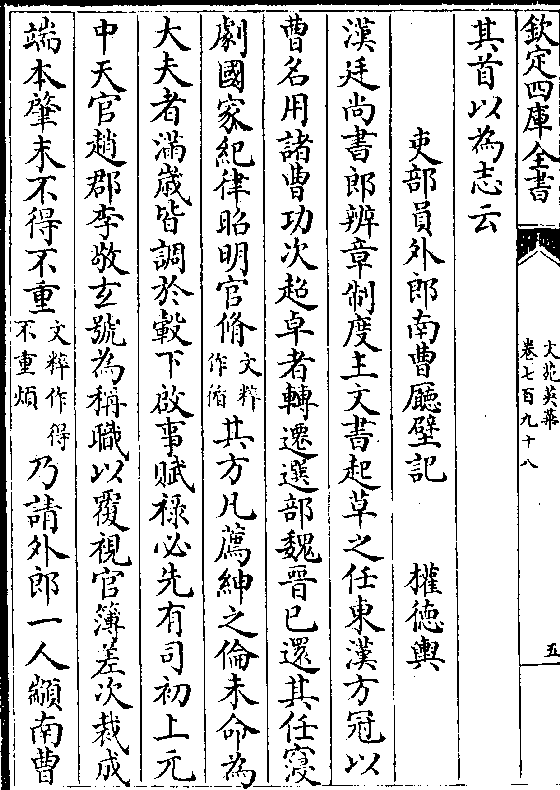 欽定四庫全書
文苑英華
卷七百九十八
五
其首以為志云
吏部員外郎南曹廳壁記　權德輿
漢廷尚書郎辨章制度主文書起草之任東漢方冠以
曹名用諸曹功次超卓者轉遷選部魏晉已還其任寖
劇國家紀律昭明官脩文粹作循其方凡薦紳之倫未命為
大夫者滿歲皆調於轂下啟事賦祿必先有司初上元
中天官趙郡李敬玄號為稱職以覆視官簿差次裁成
端本肇末不得不重文粹作得不重煩乃請外郎一人顓南曹